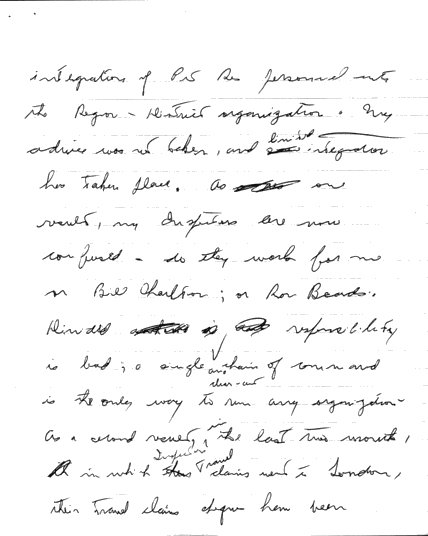 integration of Pit Res personnel into
the Region - District organization. My
advice was not taken, and limited integration
has taken place. As one
result, my Inspectors are now
confused - do they work for me
or Bill Charlton; or Ron Beads.
Divided responsibility
is bad; a single and clear-cut chain of command
is the only way to run any organization
As a second result, in the last two months,
in which Inspectors Travel claims went to London,
their Travel claims cheques have been